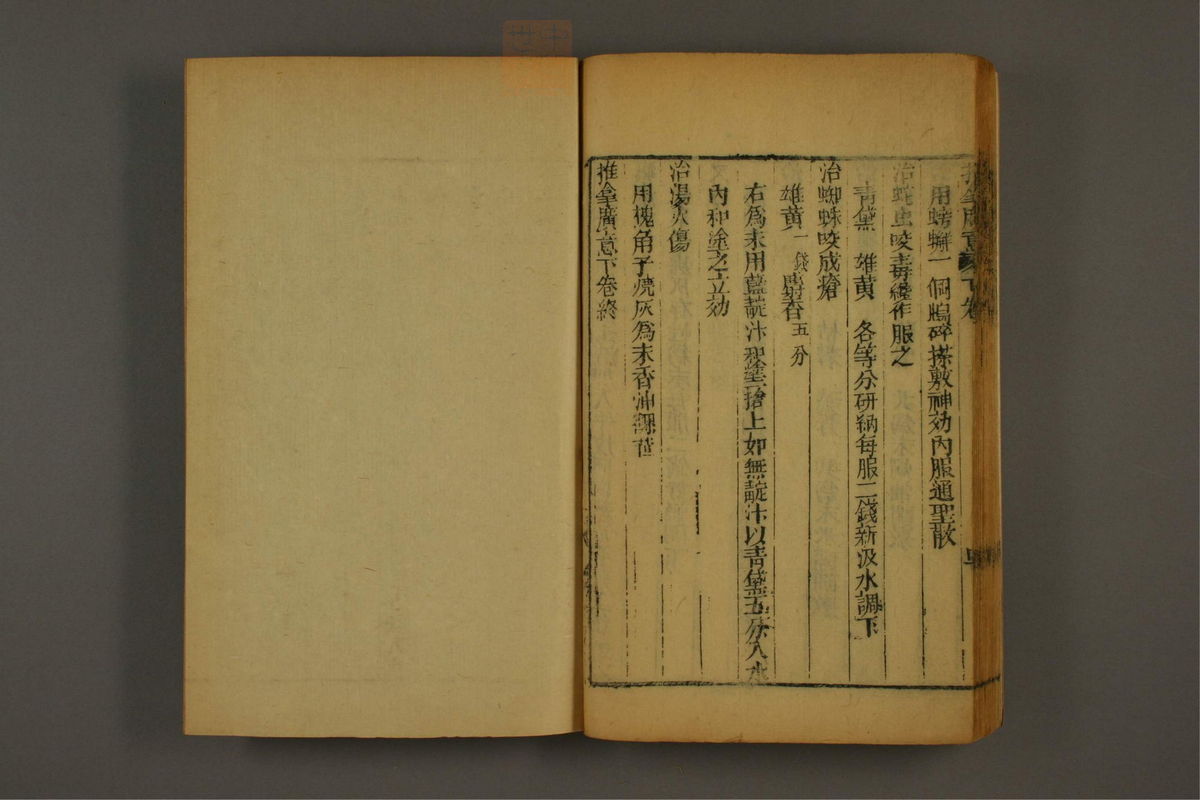 推拿廣意 下卷
用螃蠏一個搗碎搽敷神効內服通聖散
治蛇虫咬毒纏作服之
青黛 雄黄 各等分研納每服二錢新汲水調下
治蜘蛛咬成瘡
雄黄一錢 麝香五分
右為末用藍靛汁和塗瘡上如無靛汁以青黛五分入水
內和塗之立効
治湯火傷
用槐角子燒灰為末香油調搽
推拿廣意下卷終